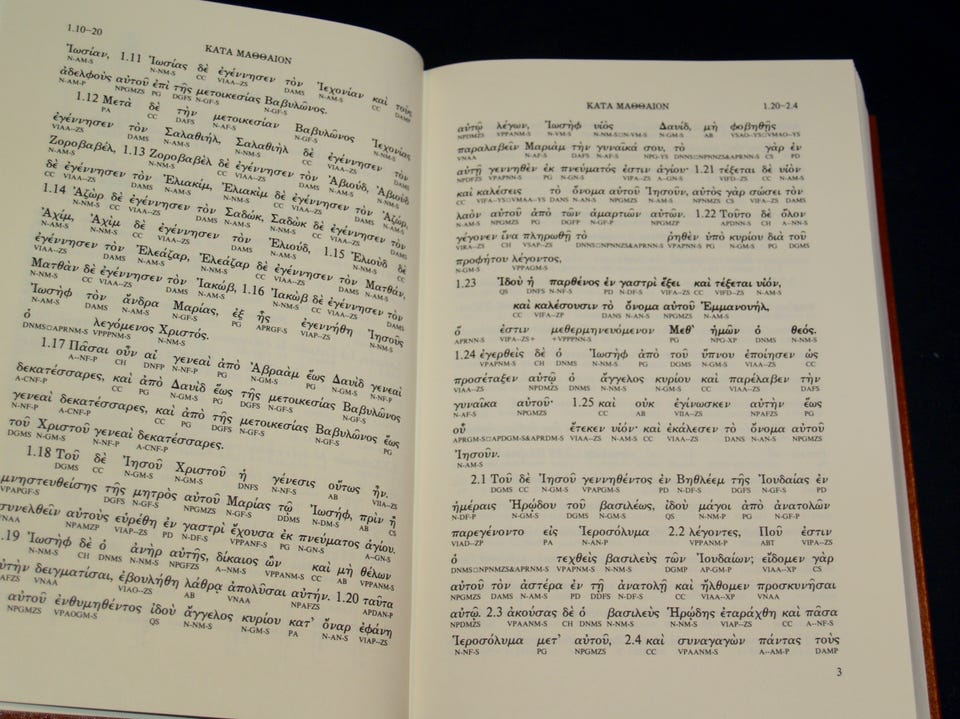 1.10–20
ΚΑΤΑ ΜΑΘΘΑΙΟΝ
Ἰωσίαν, 1.11 Ἰωσίας δὲ ἐγέννησεν τὸν Ἰεχονίαν καὶ τοὺς
N-AM-S N-NM-S CC VIAA--ZS DAMS N-AM-S CC DAMP
ἀδελφοὺς αὐτοῦ ἐπὶ τῆς μετοικεσίας Βαβυλῶνος.
N-AM-P NPGMZS PG DGFS N-GF-S N-GF-S
1.12 Μετὰ δὲ τὴν μετοικεσίαν Βαβυλῶνος Ἰεχονίας
PA CC DAFS N-AF-S N-GF-S N-NM-S
ἐγέννησεν τὸν Σαλαθιήλ, Σαλαθιὴλ δὲ ἐγέννησεν τὸν
VIAA--ZS DAMS N-AM-S N-NM-S CC VIAA--ZS DAMS
Ζοροβαβέλ, 1.13 Ζοροβαβὲλ δὲ ἐγέννησεν τὸν Ἀβιούδ, Ἀβιοὺδ
N-AM-S N-NM-S CC VIAA--ZS DAMS N-AM-S N-NM-S
δὲ ἐγέννησεν τὸν Ἐλιακίμ, Ἐλιακὶμ δὲ ἐγέννησεν τὸν Ἀζώρ,
CC VIAA--ZS DAMS N-AM-S N-NM-S CC VIAA--ZS DAMS N-AM-S
1.14 Ἀζὼρ δὲ ἐγέννησεν τὸν Σαδώκ, Σαδὼκ δὲ ἐγέννησεν τὸν
N-NM-S CC VIAA--ZS DAMS N-AM-S N-NM-S CC VIAA--ZS DAMS
Ἀχίμ, Ἀχὶμ δὲ ἐγέννησεν τὸν Ἐλιούδ, 1.15 Ἐλιοὺδ δὲ
N-AM-S N-NM-S CC VIAA--ZS DAMS N-AM-S N-NM-S CC
ἐγέννησεν τὸν Ἐλεάζαρ, Ἐλεάζαρ δὲ ἐγέννησεν τὸν Ματθάν,
VIAA--ZS DAMS N-AM-S N-NM-S CC VIAA--ZS DAMS N-AM-S
Ματθὰν δὲ ἐγέννησεν τὸν Ἰακώβ, 1.16 Ἰακὼβ δὲ ἐγέννησεν τὸν
N-NM-S CC VIAA--ZS DAMS N-AM-S N-NM-S CC VIAA--ZS DAMS
Ἰωσὴφ τὸν ἄνδρα Μαρίας, ἐξ ἧς ἐγεννήθη Ἰησοῦς
N-AM-S DAMS N-AM-S N-GF-S PG APRGF-S VIAP--ZS N-NM-S
ὁ λεγόμενος Χριστός.
DNMS□APRNM-S VPPPNM-S N-NM-S
1.17 Πᾶσαι οὖν αἱ γενεαὶ ἀπὸ Ἀβραὰμ ἕως Δαυὶδ γενεαὶ
A--NF-P CH DNFP N-NF-P PG N-GM-S PG N-GM-S N-NF-P
δεκατέσσαρες, καὶ ἀπὸ Δαυὶδ ἕως τῆς μετοικεσίας Βαβυλῶνος
A-CNF-P CC PG N-GM-S PG DGFS N-GF-S N-GF-S
γενεαὶ δεκατέσσαρες, καὶ ἀπὸ τῆς μετοικεσίας Βαβυλῶνος ἕως
N-NF-P A-CNF-P CC PG DGFS N-GF-S N-GF-S PG
τοῦ Χριστοῦ γενεαὶ δεκατέσσαρες.
DGMS N-GM-S N-NF-P A-CNF-P
1.18 Τοῦ δὲ Ἰησοῦ Χριστοῦ ἡ γένεσις οὕτως ἦν.
DGMS CC N-GM-S N-GM-S DNFS N-NF-S AB VIIA--ZS
μνηστευθείσης τῆς μητρὸς αὐτοῦ Μαρίας τῷ Ἰωσήφ, πρὶν ἢ
VPAPGF-S DGFS N-GF-S NPGMZS N-GF-S DDMS N-DM-S AB CS
συνελθεῖν αὐτοὺς εὑρέθη ἐν γαστρὶ ἔχουσα ἐκ πνεύματος ἁγίου.
VNAA NPAMZP VIAP--ZS PD N-DF-S VPPANF-S PG N-GN-S A--GN-S
1.19 Ἰωσὴφ δὲ ὁ ἀνὴρ αὐτῆς, δίκαιος ὢν καὶ μὴ θέλων
N-NM-S CH DNMS N-NM-S NPGFZS A--NM-S VPPANM-S CC AB VPPANM-S
αὐτὴν δειγματίσαι, ἐβουλήθη λάθρᾳ ἀπολῦσαι αὐτήν. 1.20 ταῦτα
NPAFZS VNAA VIAO--ZS AB VNAA NPAFZS APDAN-P
αὐτοῦ ἐνθυμηθέντος ἰδοὺ ἄγγελος κυρίου κατ' ὄναρ ἐφάνη
NPGMZS VPAOGM-S QS N-NM-S N-GM-S PA N-AN-S VIAP--ZS
ΚΑΤΑ ΜΑΘΘΑΙΟΝ 1.20–2.4
αὐτῷ λέγων, Ἰωσὴφ υἱὸς Δαυίδ, μὴ φοβηθῇς
NPDMZS VPPANM-S N-VM-S N-NM-S□N-VM-S N-GM-S AB VSAO--YS□VMAO--YS
παραλαβεῖν Μαριὰμ τὴν γυναῖκά σου, τὸ γὰρ ἐν
VNAA N-AF-S DAFS N-AF-S NPG-YS DNNS□NPNNZS&APRNN-S CS PD
αὐτῇ γεννηθὲν ἐκ πνεύματός ἐστιν ἁγίου· 1.21 τέξεται δὲ υἱὸν
NPDFZS VPAPNN-S PG N-GN-S VIPA--ZS A--GN-S VIFD--ZS CC N-AM-S
καὶ καλέσεις τὸ ὄνομα αὐτοῦ Ἰησοῦν, αὐτὸς γὰρ σώσει τὸν
CC VIFA--YS□VMAA--YS DANS N-AN-S NPGMZS N-AM-S NPNMZS CS VIFA--ZS DAMS
λαὸν αὐτοῦ ἀπὸ τῶν ἁμαρτιῶν αὐτῶν. 1.22 Τοῦτο δὲ ὅλον
N-AM-S NPGMZS PG DGFP N-GF-P NPGMZP APDNN-S CH A--NN-S
γέγονεν ἵνα πληρωθῇ τὸ ῥηθὲν ὑπὸ κυρίου διὰ τοῦ
VIRA--ZS CH VSAP--ZS DNNS□NPNNZS&APRNN-S VPAPNN-S PG N-GM-S PG DGMS
προφήτου λέγοντος,
N-GM-S VPPAGM-S
1.23 Ἰδοὺ ἡ παρθένος ἐν γαστρὶ ἕξει καὶ τέξεται υἱόν,
QS DNFS N-NF-S PD N-DF-S VIFA--ZS CC VIFD--ZS N-AM-S
καὶ καλέσουσιν τὸ ὄνομα αὐτοῦ Ἐμμανουήλ,
CC VIFA--ZP DANS N-AN-S NPGMZS N-AM-S
ὅ ἐστιν μεθερμηνευόμενον Μεθ' ἡμῶν ὁ θεός.
APRNN-S VIPA--ZS+ +VPPPNN-S PG NPG-XP DNMS N-NM-S
1.24 ἐγερθεὶς δὲ ὁ Ἰωσὴφ ἀπὸ τοῦ ὕπνου ἐποίησεν ὡς
VPAPNM-S CH DNMS N-NM-S PG DGMS N-GM-S VIAA--ZS CS
προσέταξεν αὐτῷ ὁ ἄγγελος κυρίου καὶ παρέλαβεν τὴν
VIAA--ZS NPDMZS DNMS N-NM-S N-GM-S CC VIAA--ZS DAFS
γυναῖκα αὐτοῦ· 1.25 καὶ οὐκ ἐγίνωσκεν αὐτὴν ἕως
N-AF-S NPGMZS CC AB VIIA--ZS NPAFZS PG
οὗ ἔτεκεν υἱόν· καὶ ἐκάλεσεν τὸ ὄνομα αὐτοῦ
APRGM-S□APDGM-S&APRDM-S VIAA--ZS N-AM-S CC VIAA--ZS DANS N-AN-S NPGMZS
Ἰησοῦν.
N-AM-S
2.1 Τοῦ δὲ Ἰησοῦ γεννηθέντος ἐν Βηθλέεμ τῆς Ἰουδαίας ἐν
DGMS CC N-GM-S VPAPGM-S PD N-DF-S DGFS N-GF-S PD
ἡμέραις Ἡρῴδου τοῦ βασιλέως, ἰδοὺ μάγοι ἀπὸ ἀνατολῶν
N-DF-P N-GM-S DGMS N-GM-S QS N-NM-P PG N-GF-P
παρεγένοντο εἰς Ἱεροσόλυμα 2.2 λέγοντες, Ποῦ ἐστιν
VIAD--ZP PA N-AN-P VPPANM-P ABT VIPA--ZS
ὁ τεχθεὶς βασιλεὺς τῶν Ἰουδαίων; εἴδομεν γὰρ
DNMS□NPNMZS&APRNM-S VPAPNM-S N-NM-S DGMP AP-GM-P VIAA--XP CS
αὐτοῦ τὸν ἀστέρα ἐν τῇ ἀνατολῇ καὶ ἤλθομεν προσκυνῆσαι
NPGMZS DAMS N-AM-S PD DDFS N-DF-S CC VIAA--XP VNAA
αὐτῷ. 2.3 ἀκούσας δὲ ὁ βασιλεὺς Ἡρῴδης ἐταράχθη καὶ πᾶσα
NPDMZS VPAANM-S CH DNMS N-NM-S N-NM-S VIAP--ZS CC A--NF-S
Ἱεροσόλυμα μετ' αὐτοῦ, 2.4 καὶ συναγαγὼν πάντας τοὺς
N-NF-S PG NPGMZS CC VPAANM-S A--AM-P DAMP
3